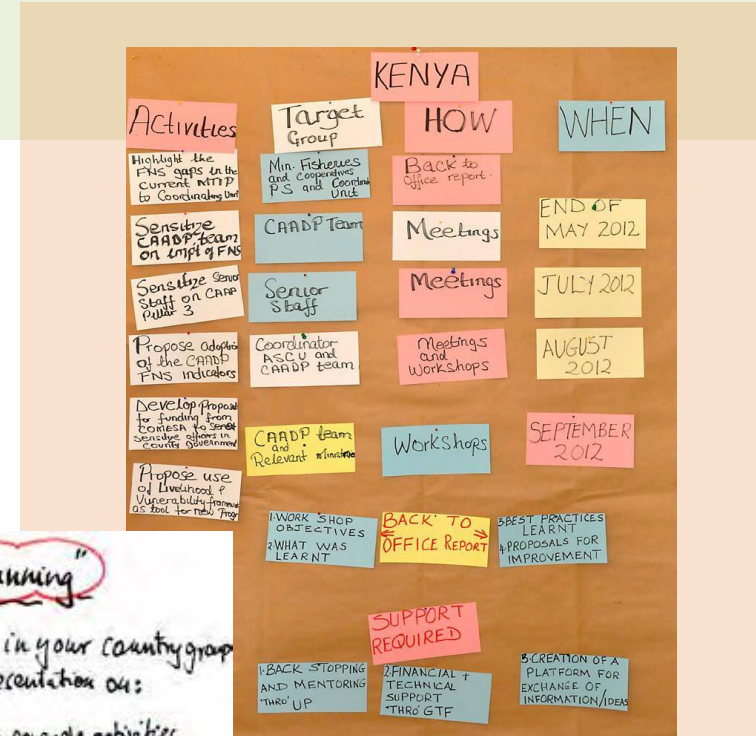 KENYA
Activities
Target
Group
HOW
WHEN
Highlight the
FNS gaps in the
current MTIP
to Coordinating Unit
Min. Fisheries
and cooperatives
PS and Coordin
Unit
Back to
Office report.
END OF
MAY 2012
Sensitize
CAADP team
on impt of FNS
CAADP Team
Meetings
Sensitize Senior
Staff on CAAP
Pillar 3
Senior
Staff
Meetings
JULY 2012
Propose adoptio
of the CAADP
FNS indicators
Coordinator
ASCU and
CAADP team
Meetings
and
Workshops
AUGUST
2012
Develop Propos
for funding from
COMESA to
officers in
county government
CAADP team
and
Relevant
Workshops
SEPTEMBER
2012
Propose use
of Livelihood &
as tool for new Progr
1·WORK SHOP
OBJECTIVES
2·WHAT WAS
LEARNT
BACK TO
OFFICE REPORT
3·BEST PRACTICES
LEARNT
4·PROPOSALS FOR
IMPROVEMENT
SUPPORT
REQUIRED
1·BACK STOPPING
AND MENTORING
"THRO' UP
2·FINANCIAL +
TECHNICAL
SUPPORT
"THRO' GTF
3·CREATION OF A
PLATFORM FOR
EXCHANGE OF
INFORMATION/IDEAS
nning"
in your country group
esentation on:
activities